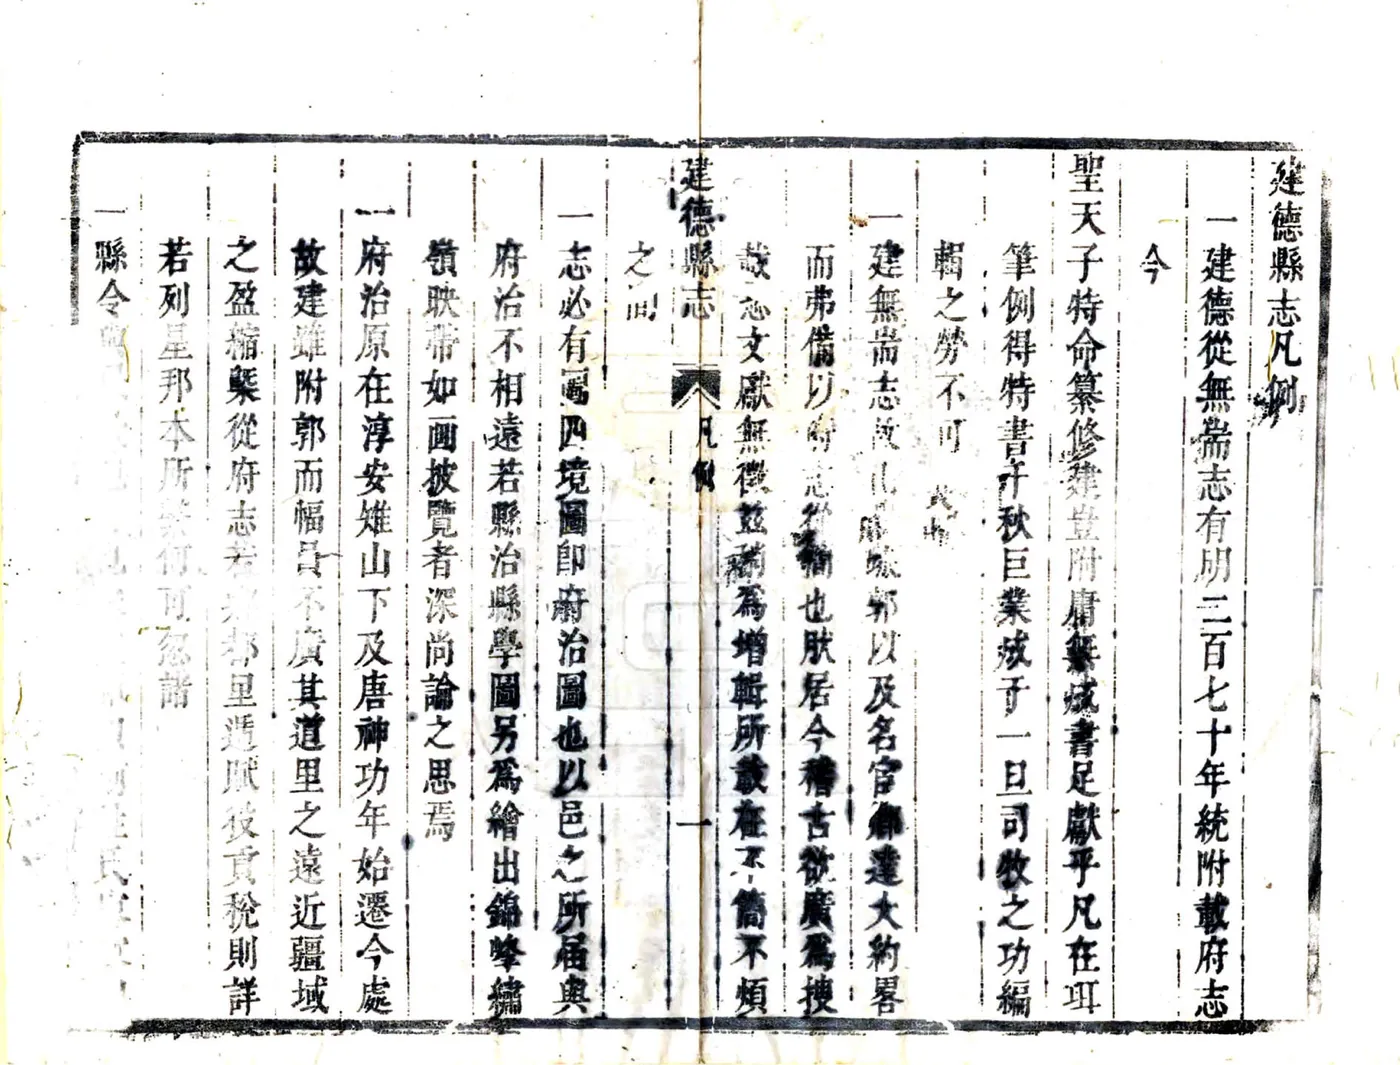 建德縣志凡例
一建德從無耑志有明二百七十年統附載府志
今
聖天子特命纂修建豈附庸無成書足獻乎凡在珥
筆例得特書千秋巨業成于一旦司牧之功編
輯之勞不可
一建無耑志故 郭以及名宦鄉達大約畧
而弗備以府志從簡也肰居今稽古欲廣爲搜
哉志文獻無徵兹稍爲增輯所載在不簡不煩
之間
建德縣志 凡例 一
一志必有圖四境圖卽府治圖也以邑之所届與
府治不相遠若縣治縣學圖另爲繪出錦峰繡
嶺映帶如画披覽者深尚論之思焉
一府治原在淳安雉山下及唐神功年始遷今處
故建雖附郭而幅員不廣其道里之遠近疆域
之盈縮槩從府志若 都里遞賦役貢稅則詳
若列星邦本所繫何可忽諸
一縣令